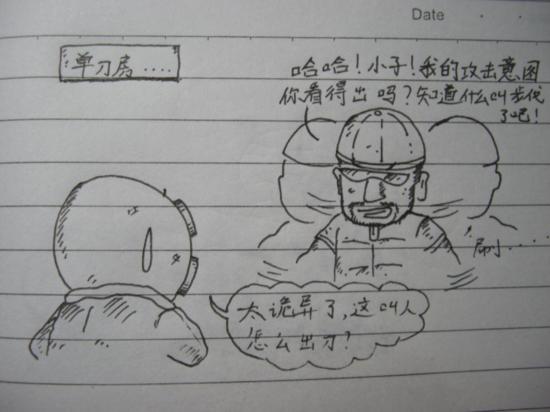 Date
单刀房....
哈哈！小子！我的攻击意图
你看得出吗？知道什么叫步伐
了吧！
刷.....
太诡异了，这叫人
怎么出刀？